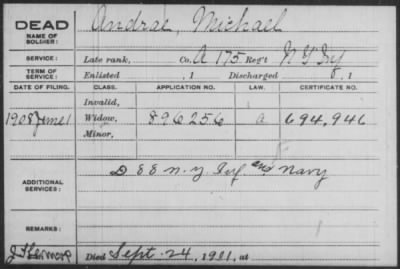 DEAD
NAME OF SOLDIER:
Andrae, Michael
SERVICE:
Late rank, Co. A 175 Reg't N. Y. Inf
TERM OF SERVICE:
Enlisted , 1 Discharged , 1
DATE OF FILING. CLASS. APPLICATION NO. LAW. CERTIFICATE NO.
Invalid,
1908 June 1 Widow, 896256 a 694,946
Minor,
ADDITIONAL SERVICES:
D 88 N. Y. Inf and Navy
REMARKS:
Died Sept. 24, 1901, at